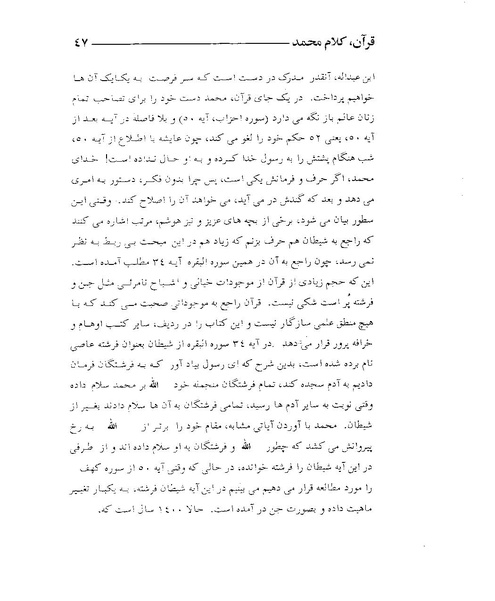 قرآن، کلام محمد ۴۷
ابن عبداله، آنقدر مدرک در دست است که سر فرصت به یکایک آن ها
خواهیم پرداخت. در یک جای قرآن، محمد دست خود را برای تصاحب تمام
زنان عالم باز نگه می دارد (سوره احزاب، آیه ۵۰) و بلا فاصله در آیه بعد از
آیه ۵۰، یعنی ۵۲ حکم خود را لغو می کند، چون عایشه با اطلاع از آیه ۵۰،
شب هنگام پشتش را به رسول خدا کرده و به او حال نداده است! خدای
محمد، اگر حرف و فرمانش یکی است، پس چرا بدون فکر، دستور به امری
می دهد و بعد که گندش در می آید، می خواهد آن را اصلاح کند. وقتی این
سطور بیان می شود، برخی از بچه های عزیز و تیز هوشم، مرتب اشاره می کنند
که راجع به شیطان هم حرف بزنم که زیاد هم در این مبحث بی ربط به نظر
نمی رسد، چون راجع به آن در همین سوره البقره آیه ۳۴ مطلب آمده است.
این که حجم زیادی از قرآن از موجودات خیالی و اشباح نامرئی مثل جن و
فرشته پُر است شکی نیست. قرآن راجع به موجوداتی صحبت می کند که با
هیچ منطق علمی سازگار نیست و این کتاب را در ردیف، سایر کتب اوهام و
خرافه پرور قرار می دهد. در آیه ۳۴ سوره البقره از شیطان بعنوان فرشته عاصی
نام برده شده است، بدین شرح که ای رسول بیاد آور که به فرشتگان فرمان
دادیم به آدم سجده کند، تمام فرشتگان منجمله خود الله بر محمد سلام داده
وقتی نوبت به سایر آدم ها رسید، تمامی فرشتگان به آن ها سلام دادند بغیر از
شیطان. محمد با آوردن آیاتی مشابه، مقام خود را برتر از الله به رخ
پیروانش می کشد که چطور الله و فرشتگان به او سلام داده اند و از طرفی
در این آیه شیطان را فرشته خوانده، در حالی که وقتی آیه ۵۰ از سوره کهف
را مورد مطالعه قرار می دهیم می بینیم در این آیه شیطان فرشته، به یکبار تغییر
ماهیت داده و بصورت جن در آمده است. حالا ۱۴۰۰ سال است که،